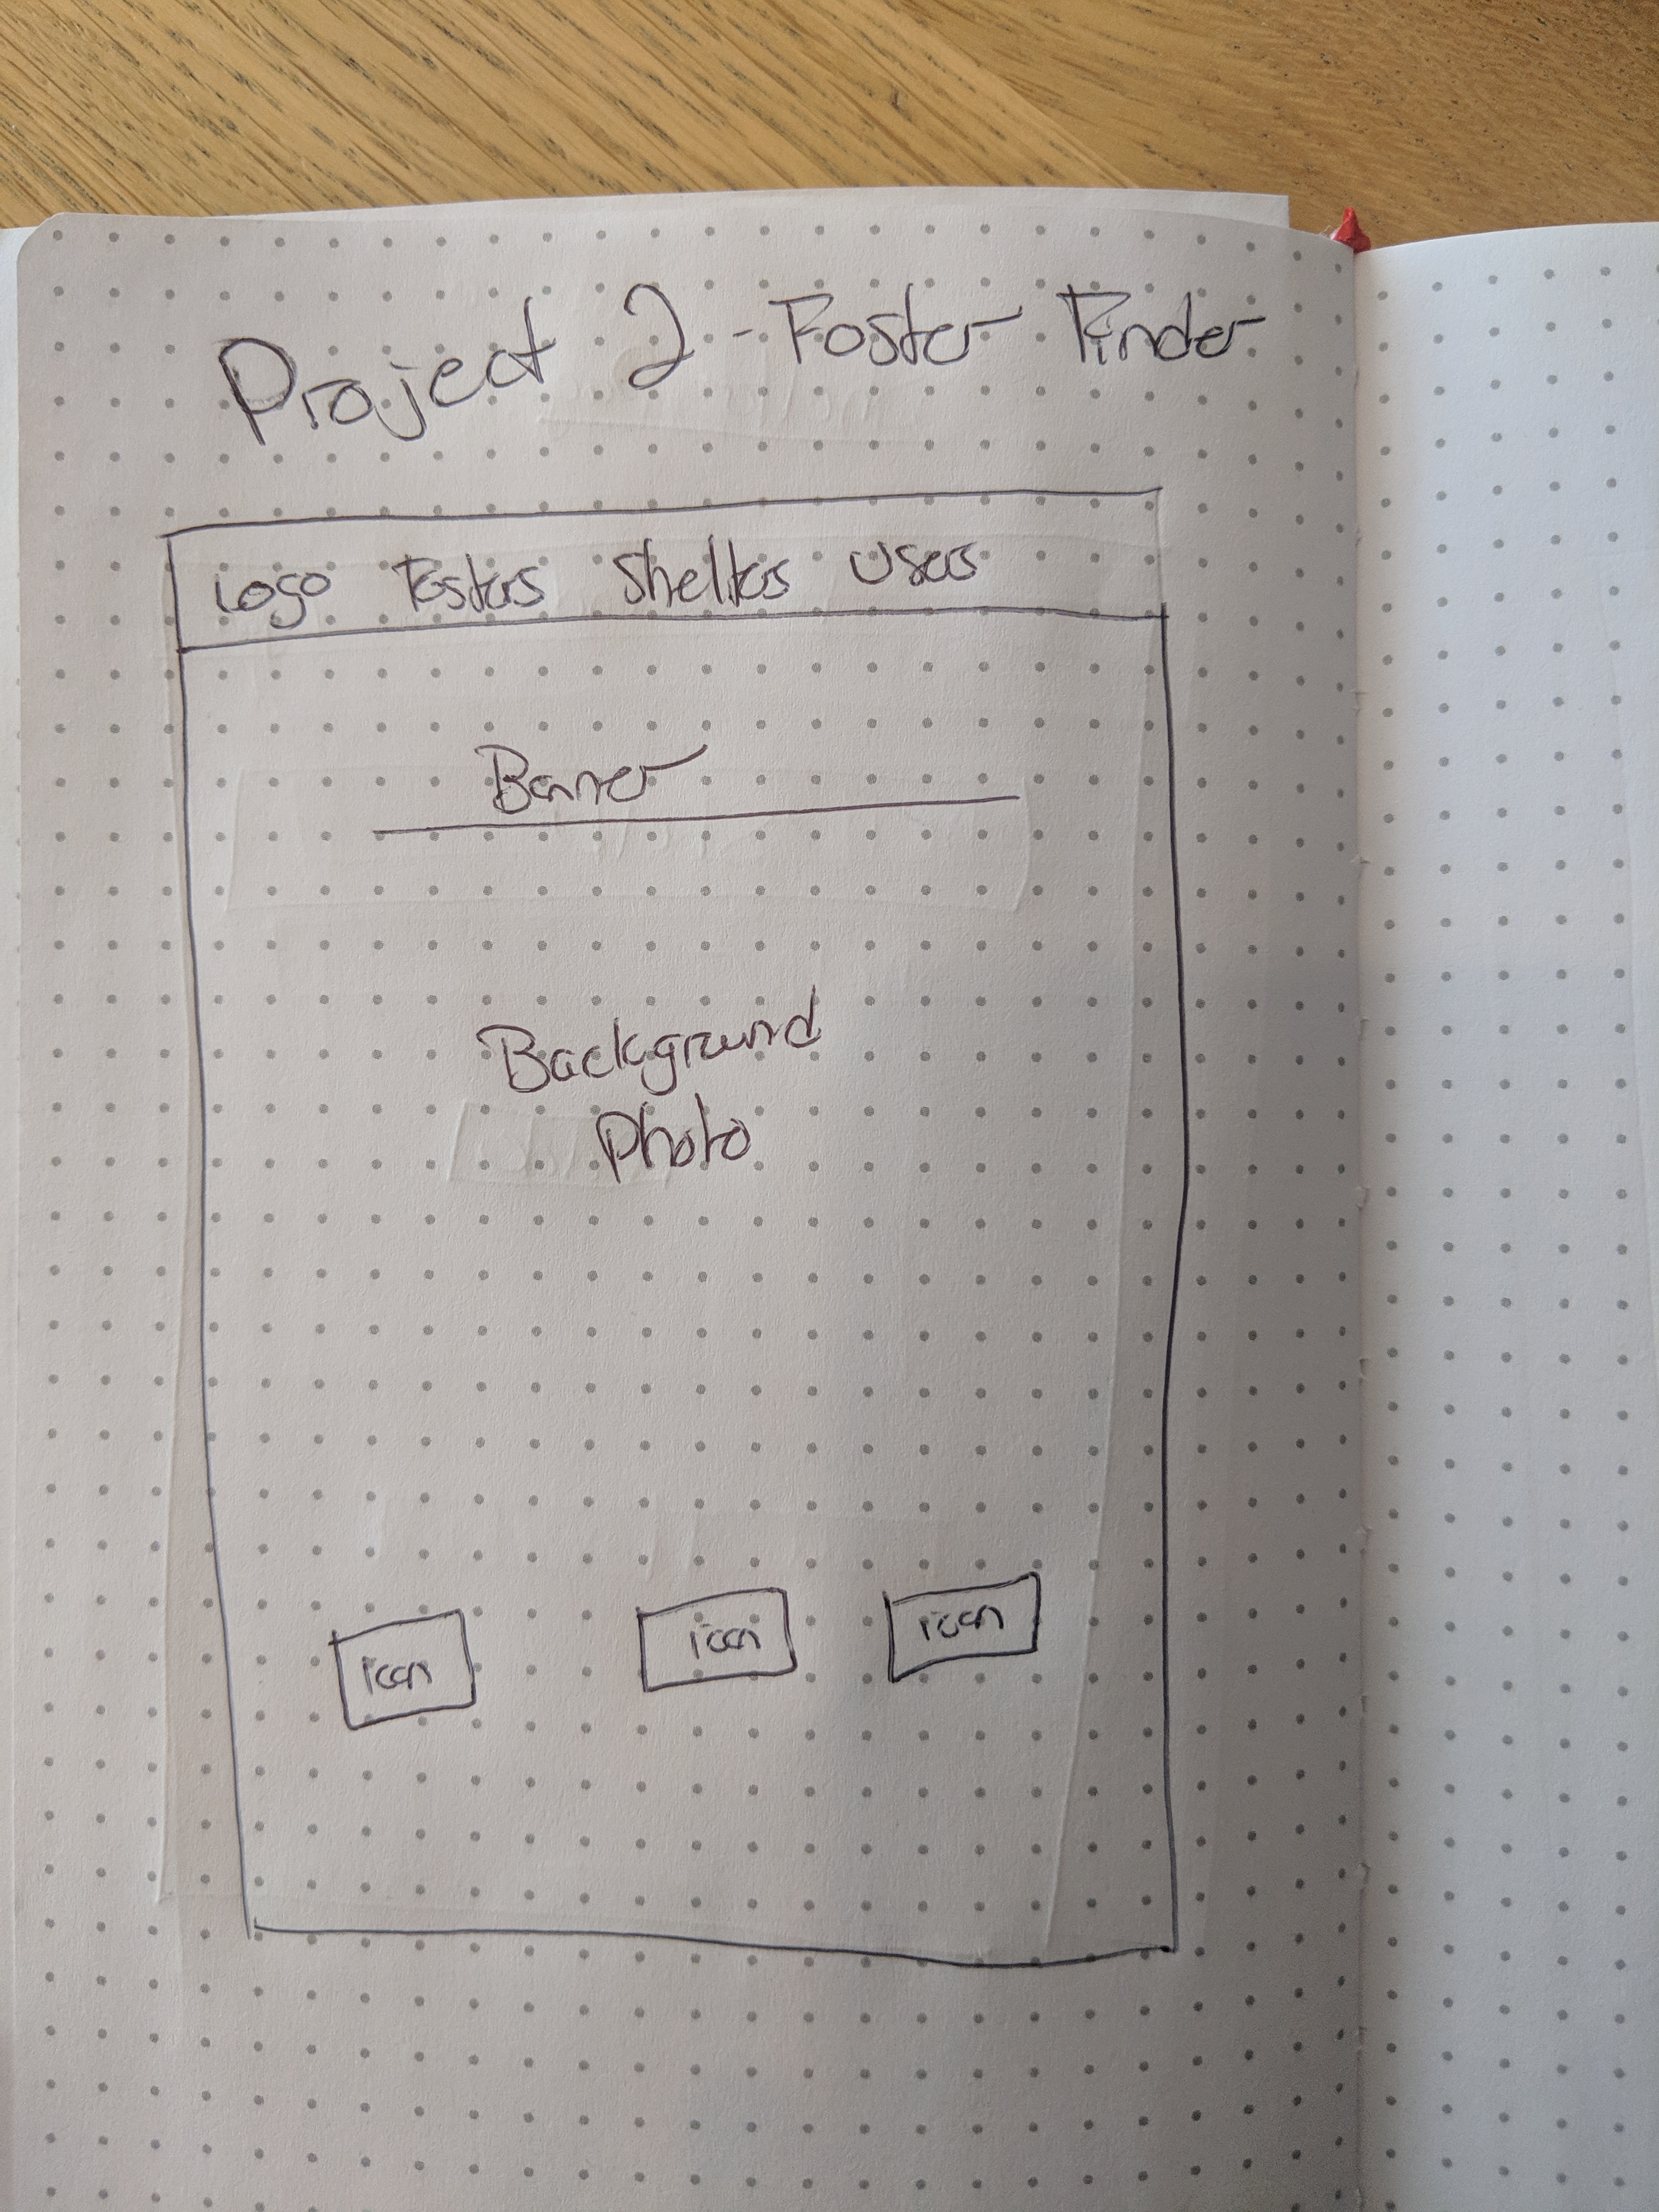 Project 2 - Foster Finder
Logo Fosters Shelters Users
Banner
Background
Photo
icon icon icon